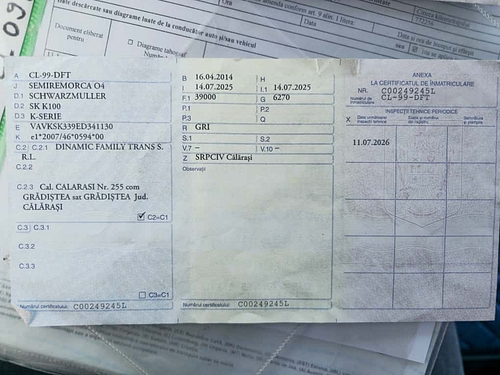 Ora
Data
Document eliberat
pentru
Diagrame
al conducător auto și/sau vehicul
A CL-99-DFT
J SEMIREMORCA O4
D.1 SCHWARZMULLER
D.2 SK K100
D.3 K-SERIE
E VAVKSK339ED341130
K e1*2007/46*0594*00
C.2 C.2.1 DINAMIC FAMILY TRANS S.
R.L.
C.2.2
C.2.3 Cal. CALARASI Nr. 255 com
GRĂDIȘTEA sat GRĂDIȘTEA Jud.
CĂLĂRAȘI
C2=C1
C.3 C.3.1
C.3.2
C.3.3
C3=C1
Numărul certificatului: C00249245L
B 16.04.2014 H
I 14.07.2025 I.1 14.07.2025
F.1 39000 G 6270
P.1 P.2
P.3 Q
R GRI
S.1 S.2
V.7 – V.10 –
Z SRPCIV Călărași
Observații
Numărul certificatului: C00249245L
ANEXA
LA CERTIFICATUL DE ÎNMATRICULARE
NR. C00249245L
Numărul de înmatriculare CL-99-DFT
INSPECȚII TEHNICE PERIODICE
X
11.07.2026